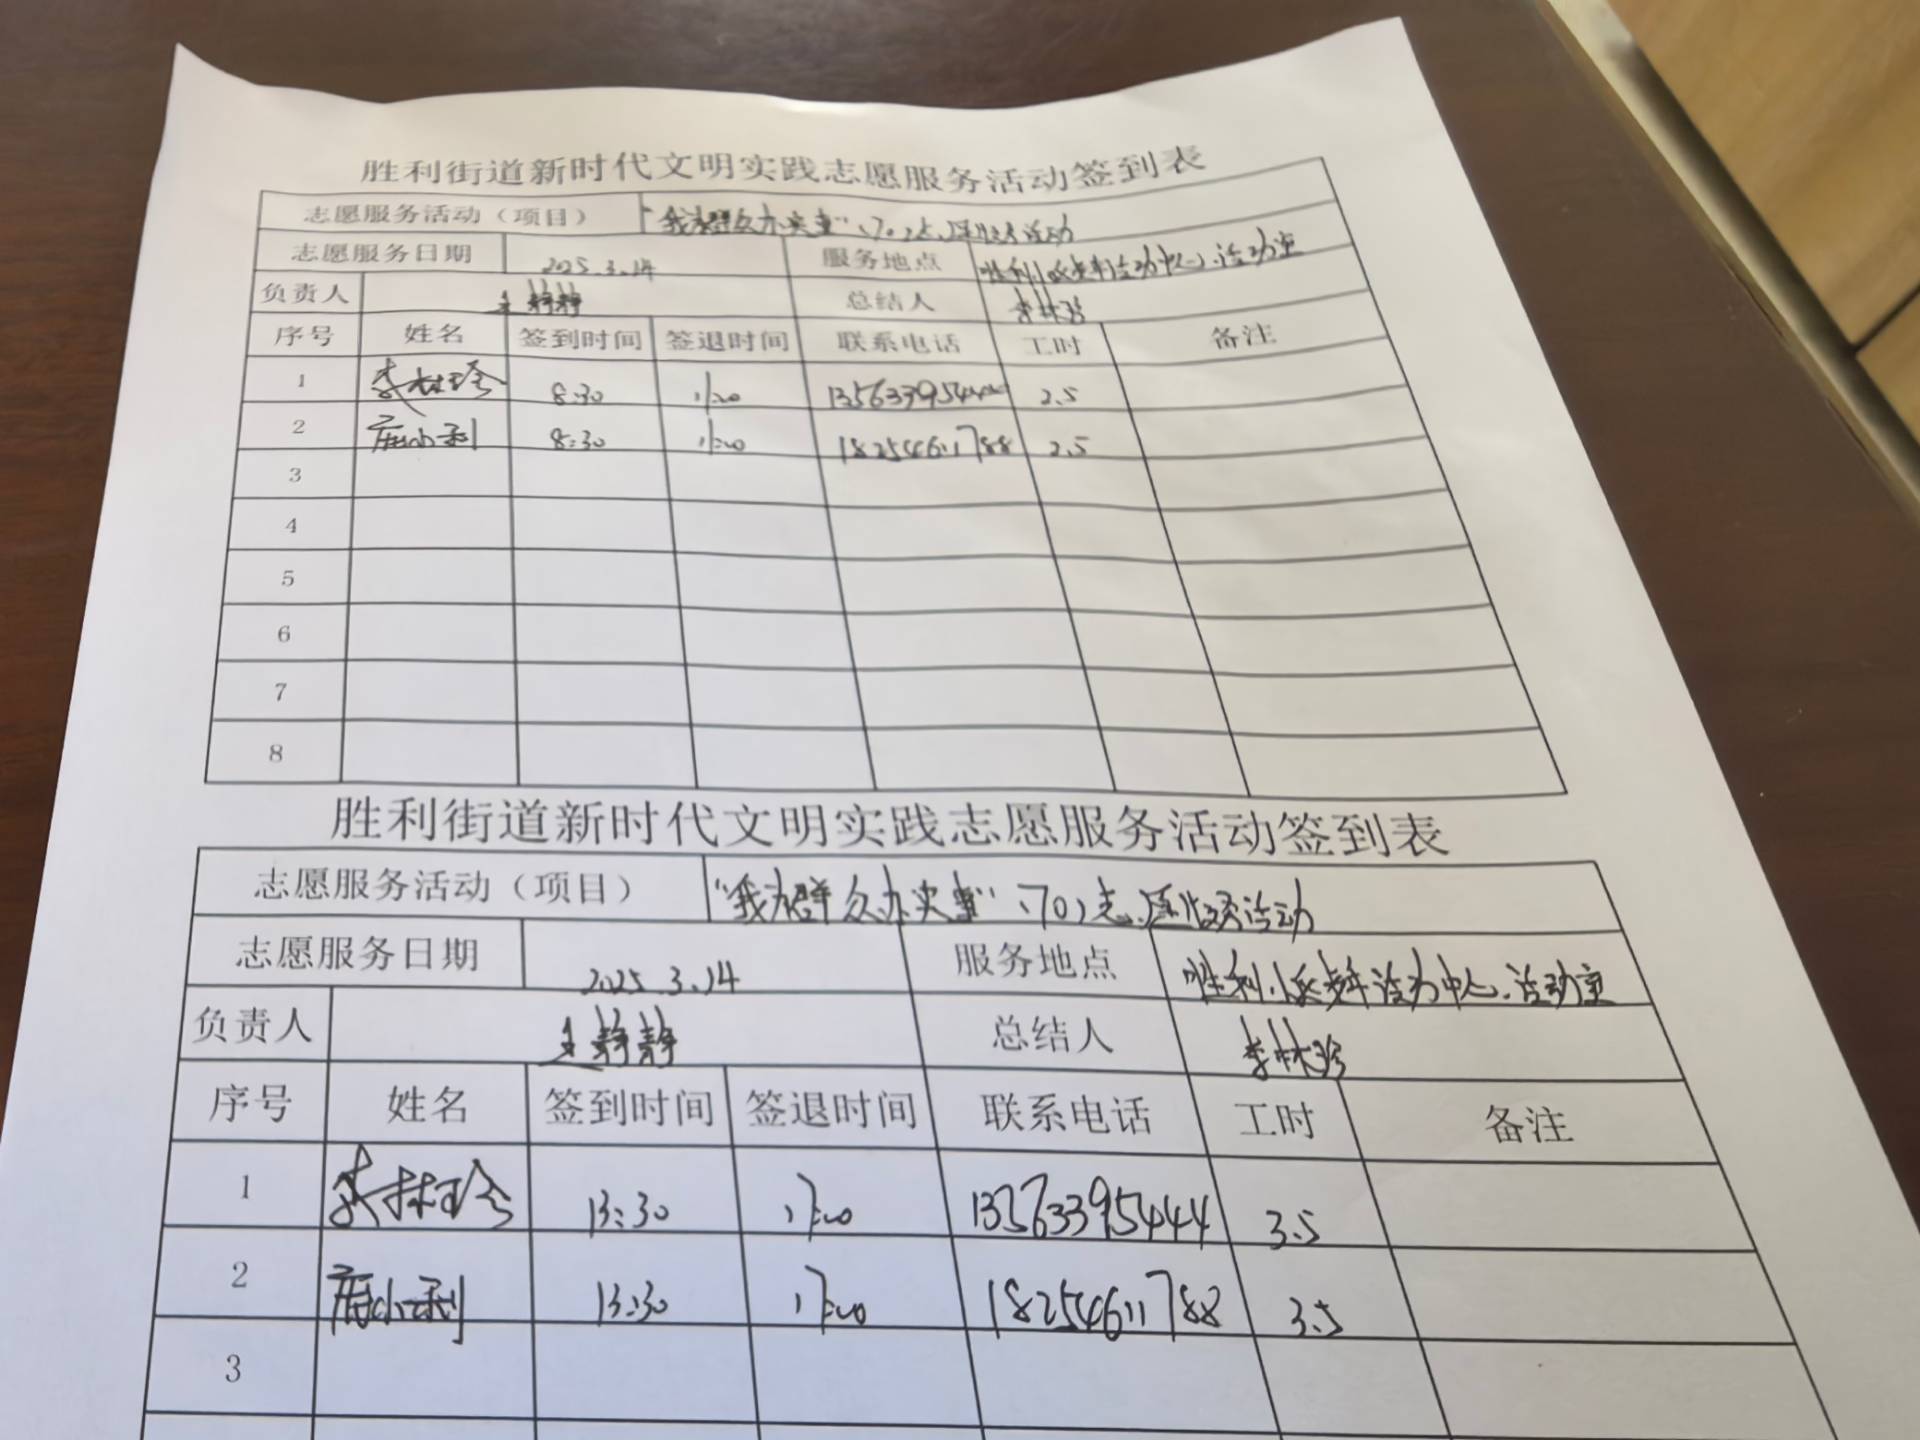 胜利街道新时代文明实践志愿服务活动签到表
志愿服务活动（项目） "我为群众办实事"、"701"志愿服务活动
志愿服务日期 2025.3.14 服务地点 胜利小区老年活动中心、活动室
负责人 王静静 总结人 李林珍
序号 姓名 签到时间 签退时间 联系电话 工时 备注
1 李林珍 8:30 11:00 13563395444 2.5
2 8:30 11:00 18254611788 2.5
3
4
5
6
7
8
胜利街道新时代文明实践志愿服务活动签到表
志愿服务活动（项目） "我为群众办实事"、"701"志愿服务活动
志愿服务日期 2025.3.14 服务地点 胜利小区老年活动中心、活动室
负责人 王静静 总结人 李林珍
序号 姓名 签到时间 签退时间 联系电话 工时 备注
1 李林珍 13:30 17:00 13563395444 3.5
2 13:30 17:00 18254611788 3.5
3